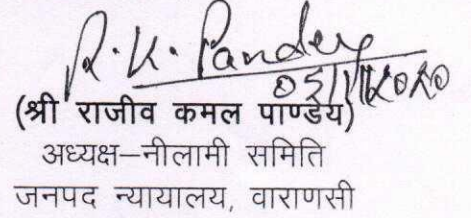 R. K. Pandey
(श्री राजीव कमल पाण्डेय)
अध्यक्ष–नीलामी समिति
जनपद न्यायालय, वाराणसी